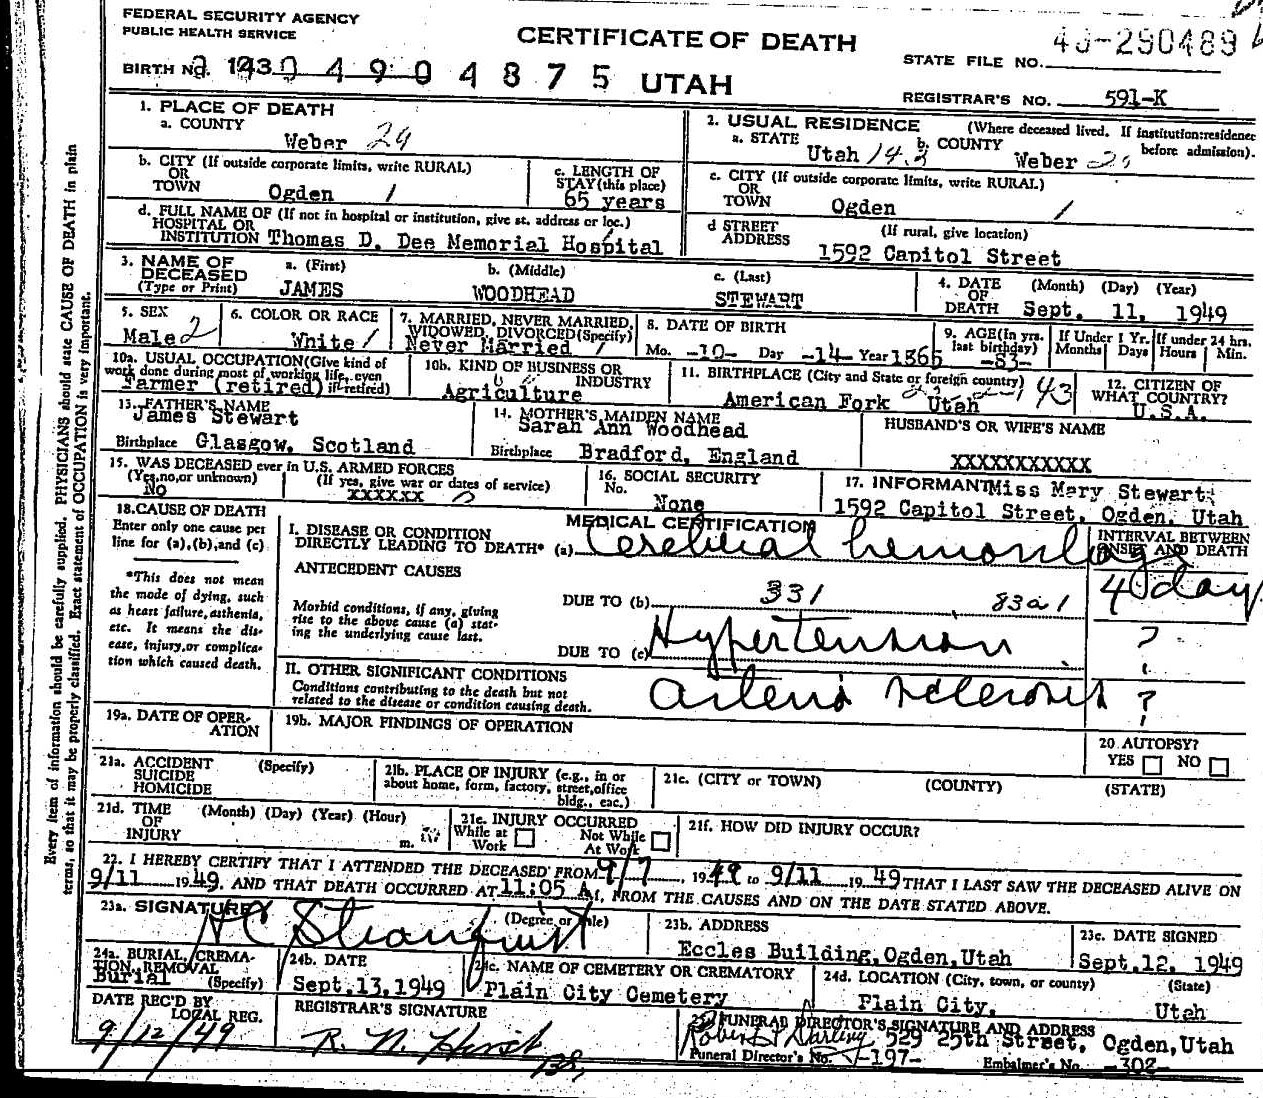 FEDERAL SECURITY AGENCY
PUBLIC HEALTH SERVICE
CERTIFICATE OF DEATH
UTAH
STATE FILE NO. 290489
BIRTH NO. 4 9 0 4 8 7 5
REGISTRAR'S NO. 591-K
1. PLACE OF DEATH
a. COUNTY
Weber 29
b. CITY (If outside corporate limits, write RURAL)
OR
TOWN Ogden 1
c. LENGTH OF
STAY (this place)
65 years
d. FULL NAME OF (If not in hospital or institution, give st. address or loc.)
HOSPITAL OR
INSTITUTION Thomas D. Dee Memorial Hospital
2. USUAL RESIDENCE (Where deceased lived. If institution: residence
before admission).
a. STATE Utah b. COUNTY Weber
c. CITY (If outside corporate limits, write RURAL)
OR
TOWN Ogden 1
d STREET (If rural, give location)
ADDRESS 1592 Capitol Street
3. NAME OF
DECEASED
(Type or Print)
a. (First) JAMES
b. (Middle) WOODHEAD
c. (Last) STEWART
4. DATE (Month) (Day) (Year)
OF
DEATH Sept. 11, 1949
5. SEX
Male 2
6. COLOR OR RACE
White 1
7. MARRIED, NEVER MARRIED,
WIDOWED, DIVORCED (Specify)
Never Married 1
8. DATE OF BIRTH
Mo. -10- Day -14- Year 1865
9. AGE (In yrs.
last birthday)
-83-
If Under 1 Yr.
Months Days
If under 24 hrs.
Hours Min.
10a. USUAL OCCUPATION (Give kind of
work done during most of working life, even
if retired)
Farmer (retired)
10b. KIND OF BUSINESS OR
INDUSTRY
Agriculture
11. BIRTHPLACE (City and State or foreign country)
American Fork Utah 43
12. CITIZEN OF
WHAT COUNTRY?
U.S.A.
13. FATHER'S NAME
James Stewart
Birthplace Glasgow, Scotland
14. MOTHER'S MAIDEN NAME
Sarah Ann Woodhead
Birthplace Bradford, England
HUSBAND'S OR WIFE'S NAME
XXXXXXXXXXX
15. WAS DECEASED ever in U.S. ARMED FORCES
(Yes, no, or unknown) (If yes, give war or dates of service)
No xxxxxx 0
16. SOCIAL SECURITY
No.
None
17. INFORMANT Miss Mary Stewart
1592 Capitol Street, Ogden, Utah
18. CAUSE OF DEATH
Enter only one cause per
line for (a), (b), and (c)
*This does not mean
the mode of dying, such
as heart failure, asthenia,
etc. It means the dis-
ease, injury, or complica-
tion which caused death.
MEDICAL CERTIFICATION
I. DISEASE OR CONDITION
DIRECTLY LEADING TO DEATH* (a) Cerebral hemorrhage
INTERVAL BETWEEN
ONSET AND DEATH
4 day
ANTECEDENT CAUSES
Morbid conditions, if any, giving
rise to the above cause (a) stat-
ing the underlying cause last.
DUE TO (b) 331 83a1
?
DUE TO (c) Hypertension
II. OTHER SIGNIFICANT CONDITIONS
Conditions contributing to the death but not
related to the disease or condition causing death.
Arterio sclerosis ?
19a. DATE OF OPER-
ATION
19b. MAJOR FINDINGS OF OPERATION
20 AUTOPSY?
YES NO
21a. ACCIDENT (Specify)
SUICIDE
HOMICIDE
21b. PLACE OF INJURY (e.g., in or
about home, form, factory, street, office
bldg., eac.)
21c. (CITY or TOWN) (COUNTY) (STATE)
21d. TIME (Month) (Day) (Year) (Hour)
OF
INJURY m.
21e. INJURY OCCURRED
While at Work Not While At Work
21f. HOW DID INJURY OCCUR?
22. I HEREBY CERTIFY THAT I ATTENDED THE DECEASED FROM 9/7, 1949 to 9/11 1949 THAT I LAST SAW THE DECEASED ALIVE ON
9/11 1949, AND THAT DEATH OCCURRED AT 11:05 A., FROM THE CAUSES AND ON THE DATE STATED ABOVE.
23a. SIGNATURE (Degree or title)
23b. ADDRESS
Eccles Building, Ogden, Utah
23c. DATE SIGNED
Sept. 12, 1949
24a. BURIAL, CREMA-
TION, REMOVAL
(Specify)
Burial
24b. DATE
Sept. 13, 1949
24c. NAME OF CEMETERY OR CREMATORY
Plain City Cemetery
24d. LOCATION (City, town, or county) (State)
Plain City, Utah
DATE REC'D BY
LOCAL REG.
9/12/49
REGISTRAR'S SIGNATURE
R. N. Hirst
25. FUNERAL DIRECTOR'S SIGNATURE AND ADDRESS
Robert Darling 529 25th Street, Ogden, Utah
Funeral Director's No. -197- Embalmer's No. -308-
Every item of information should be carefully supplied. PHYSICIANS should state CAUSE OF DEATH in plain
terms, so that it may be properly classified. Exact statement of OCCUPATION is very important.